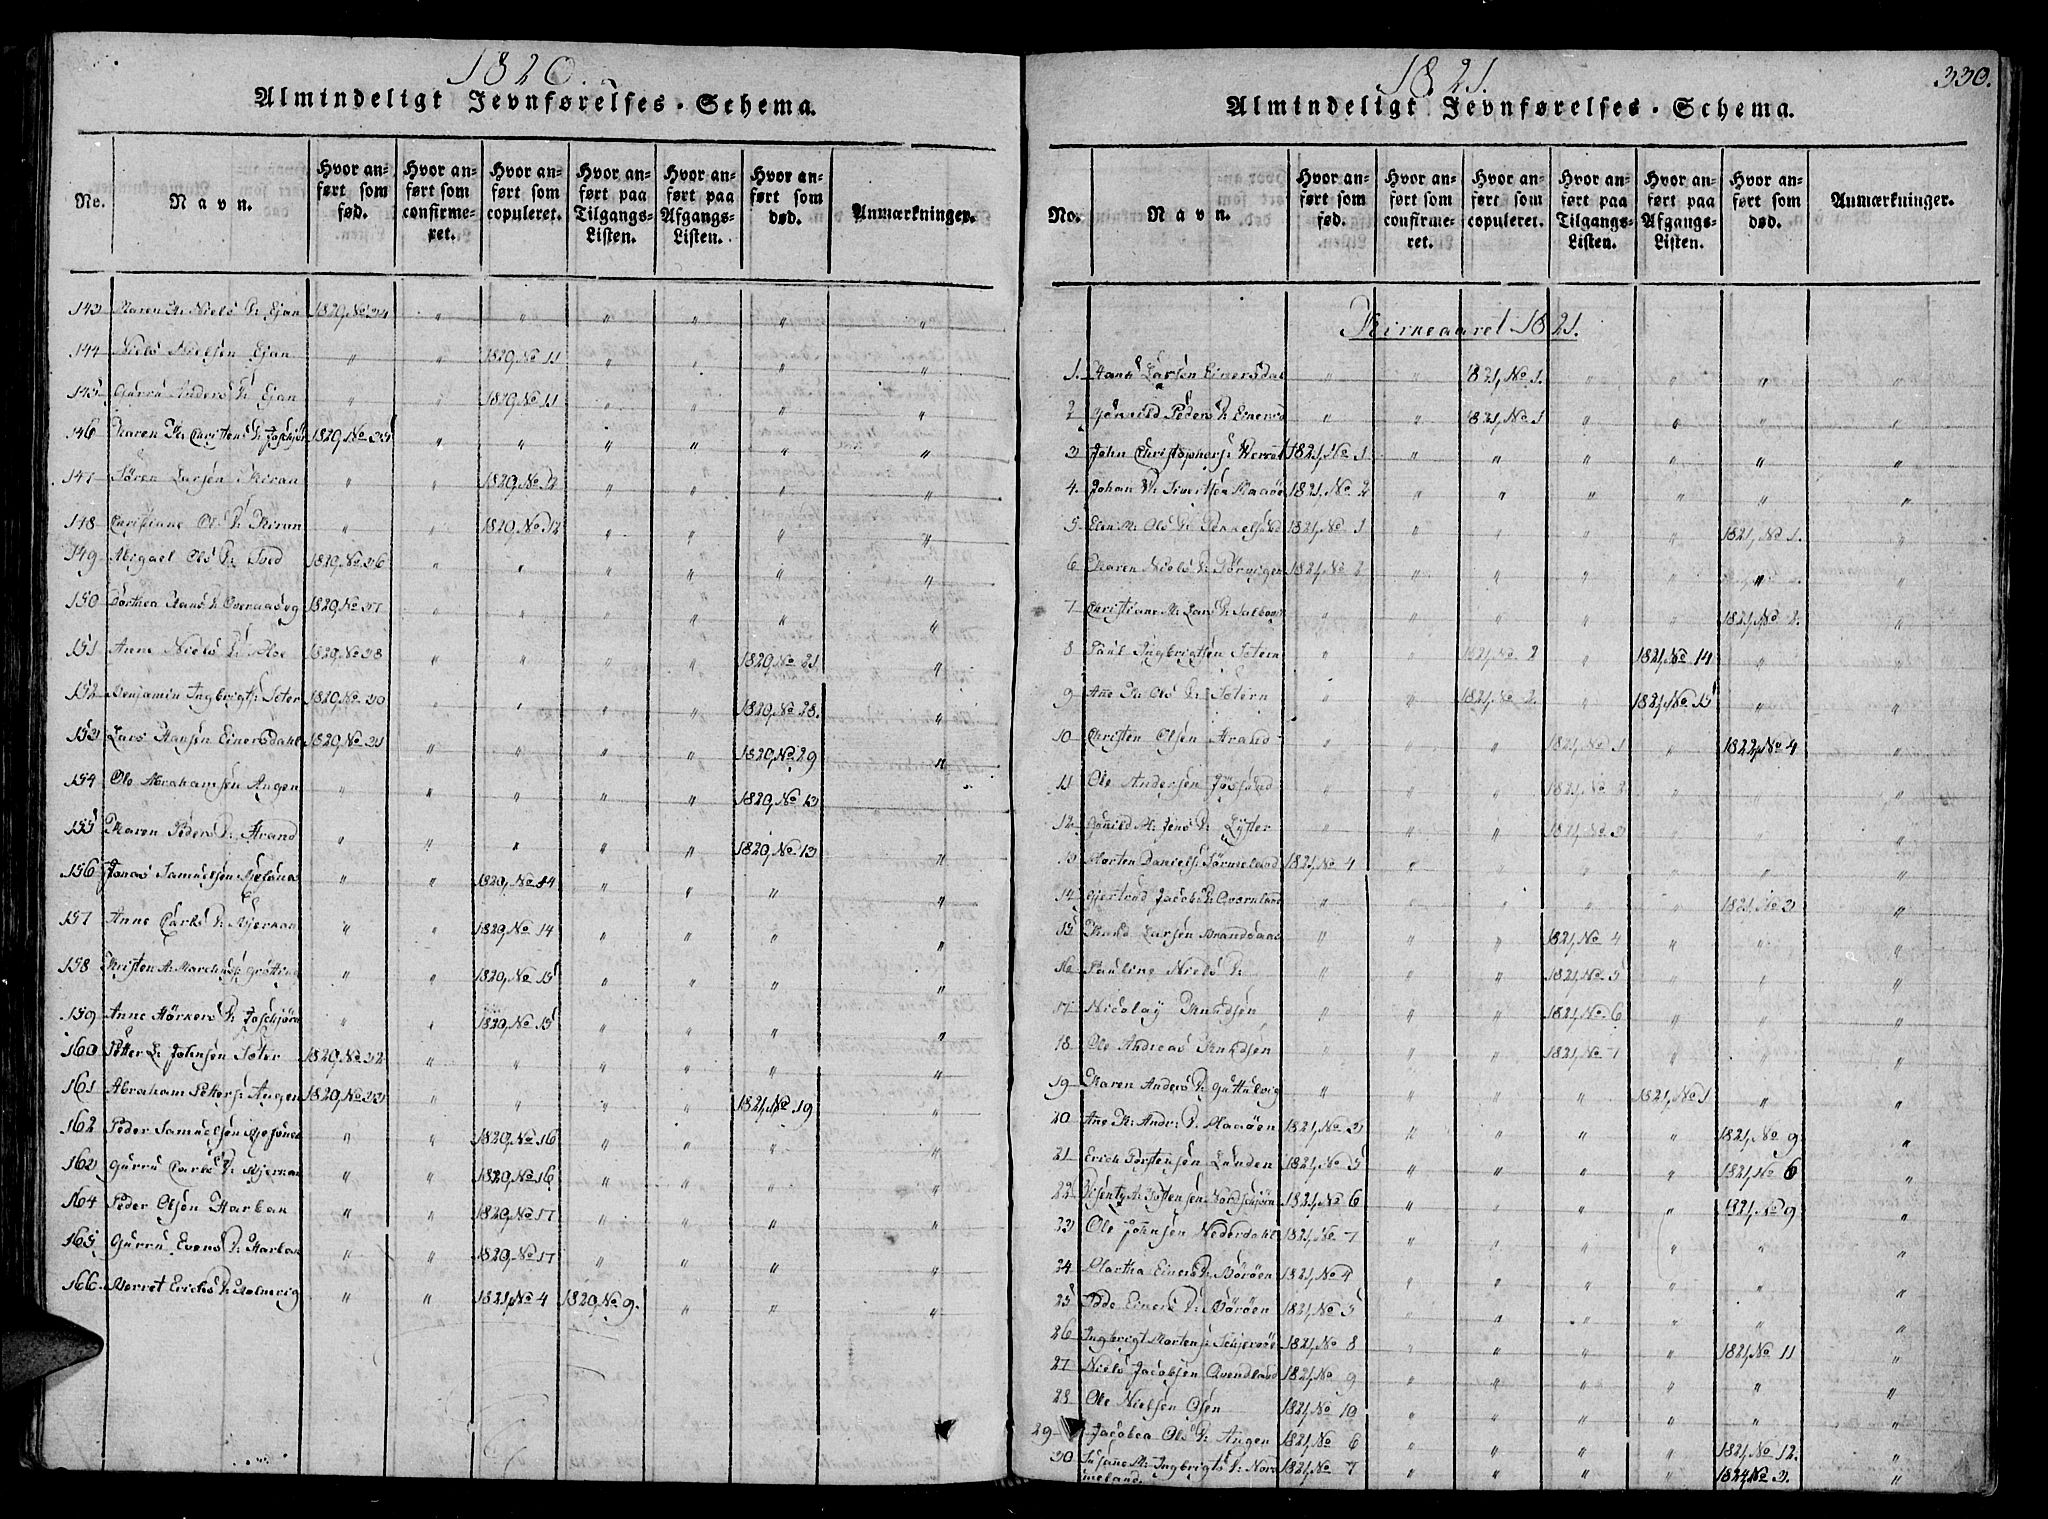 1820.
Almindeligt Jevnførelses-Schema.
No. Navn. Hvor anført som fød. Hvor anført som confirmeret. Hvor anført som copuleret. Hvor anført paa Tilgangs-Listen. Hvor anført paa Afgangs-Listen. Hvor anført som død. Anmærkninger.
143 Karen Niels D: 1820, No 34 " " " " " "
144 Niels Nielsen " " 1820, No 11 " " " "
145 Gurru Anders D: " " 1820, No 11 " " " "
146 Karen Christens D: 1820, No 35 " " " " " "
147 Sören Larsen Kiran " " 1820, No 12 " " " "
148 Christiane Ols D: Kiran " " 1820, No 12 " " " "
149 Abigael Ols D: 1820, No 36 " " " " " "
150 Dorthea Hans D: 1820, No 37 " " " " " "
151 Anne Niels D: 1820, No 38 " " " " 1820, No 21 "
152 Benjamin Ingbrigts: Seter 1820, No 30 " " " " 1820, No 28. "
153 Lars Hansen Einersdahl 1820, No 31 " " " " 1820, No 29 "
154 Ole Abrahamsen Angen " " " " " 1820, No 13
155 Karen Peders D: Strand " " " " " 1820, No 13 "
156 Jonas Samuelsen " " 1820, No 14 " " " "
157 Anne Carls D: " " 1820, No 14 " " " "
158 Kristen " " 1820, No 15 " " " "
159 Anne D: " " 1820, No 15 " " " "
160 Petter L: Johnsen Seter 1820, No 32 " " " " " "
161 Abraham Petters: Angen 1820, No 33 " " " " 1821, No 19 "
162 Peder Samuelsen " " 1820, No 16 " " " "
163 Gurru Carls D: " " 1820, No 16 " " " "
164 Peder Olsen Harban " " 1820, No 17 " " " "
165 Gurru Evens D: Harban " " 1820, No 17 " " " "
166 Berret Erichs D: Holmvig " " 1821, No 4 1820, No 9. " " "
1821.
330.
Almindeligt Jevnførelses-Schema.
No. Navn. Hvor anført som fød. Hvor anført som confirmeret. Hvor anført som copuleret. Hvor anført paa Tilgangs-Listen. Hvor anført paa Afgangs-Listen. Hvor anført som død. Anmærkninger.
Kirkeaaret 1821.
1. Hans Larsen Einersdal " " 1821, No 1. " " " "
2 Peders D: " " 1821, No 1 " " " "
3 John Christophers: 1821, No 1 " " " " " "
4. Johan Sivertsen 1821, No 2 " " " " " "
5 Elen M: Ols D: 1821, No 1 " " " " 1821, No 1. "
6 Karen Niels D: 1821, No 2 " " " " " "
7 Christiane M: Lars D: " " " " " 1821, No 2. "
8 Paul Ingbrigtsen Setern " " 1821, No 2 " 1821, No 14 " "
9 Ane K: Ols D: Setern " " 1821, No 2. " 1821, No 15 " "
10 Christen Olsen Strand " " " 1821, No 1 " 1822, No 4 "
11 Ole Andersen Jössund " " " 1821, No 2 " " "
12 Gunild M: Jens D: Lyster " " " 1821, No 3 " " "
13 Morten Daniels: 1821, No 4 " " " " " "
14 Gjertrud Jacobs D: " " " " " 1821, No 3 "
15 Knud Larsen Brandsaas " " " 1821, No 4 " " "
16 Pauline Niels D: " " " 1821, No 5 " " "
17 Nicolay Knudsen " " " 1821, No 6 " " "
18 Ole Andreas Knudsen " " " 1821, No 7 " " "
19 Karen Anders D: Guttulvig " " " " 1821, No 1 " "
20 Ane K: Andr: D: 1821, No 3 " " " " 1821, No 9 "
21 Erich Torstensen Lunden 1821, No 5 " " " " 1821, No 6 "
22 1821, No 6 " " " " 1821, No 9 "
23 Ole Johnsen Nederdahl 1821, No 7 " " " " " "
24 Martha Einers D: Böröen 1821, No 4 " " " " " "
25 Einers D: Böröen 1821, No 5 " " " " " "
26 Ingbrigt Mortens: 1821, No 8 " " " " 1821, No 11 "
27 Niels Jacobsen Qvendland 1821, No 9 " " " " " "
28 Ole Nielsen Osen 1821, No 10 " " " " " "
29 Jacobea Ols D: Angen 1821, No 6 " " " " 1821, No 12. "
30 Susane M: Ingbrigts D: Nord 1821, No 7 " " " " 1824, No 3. "
meland.